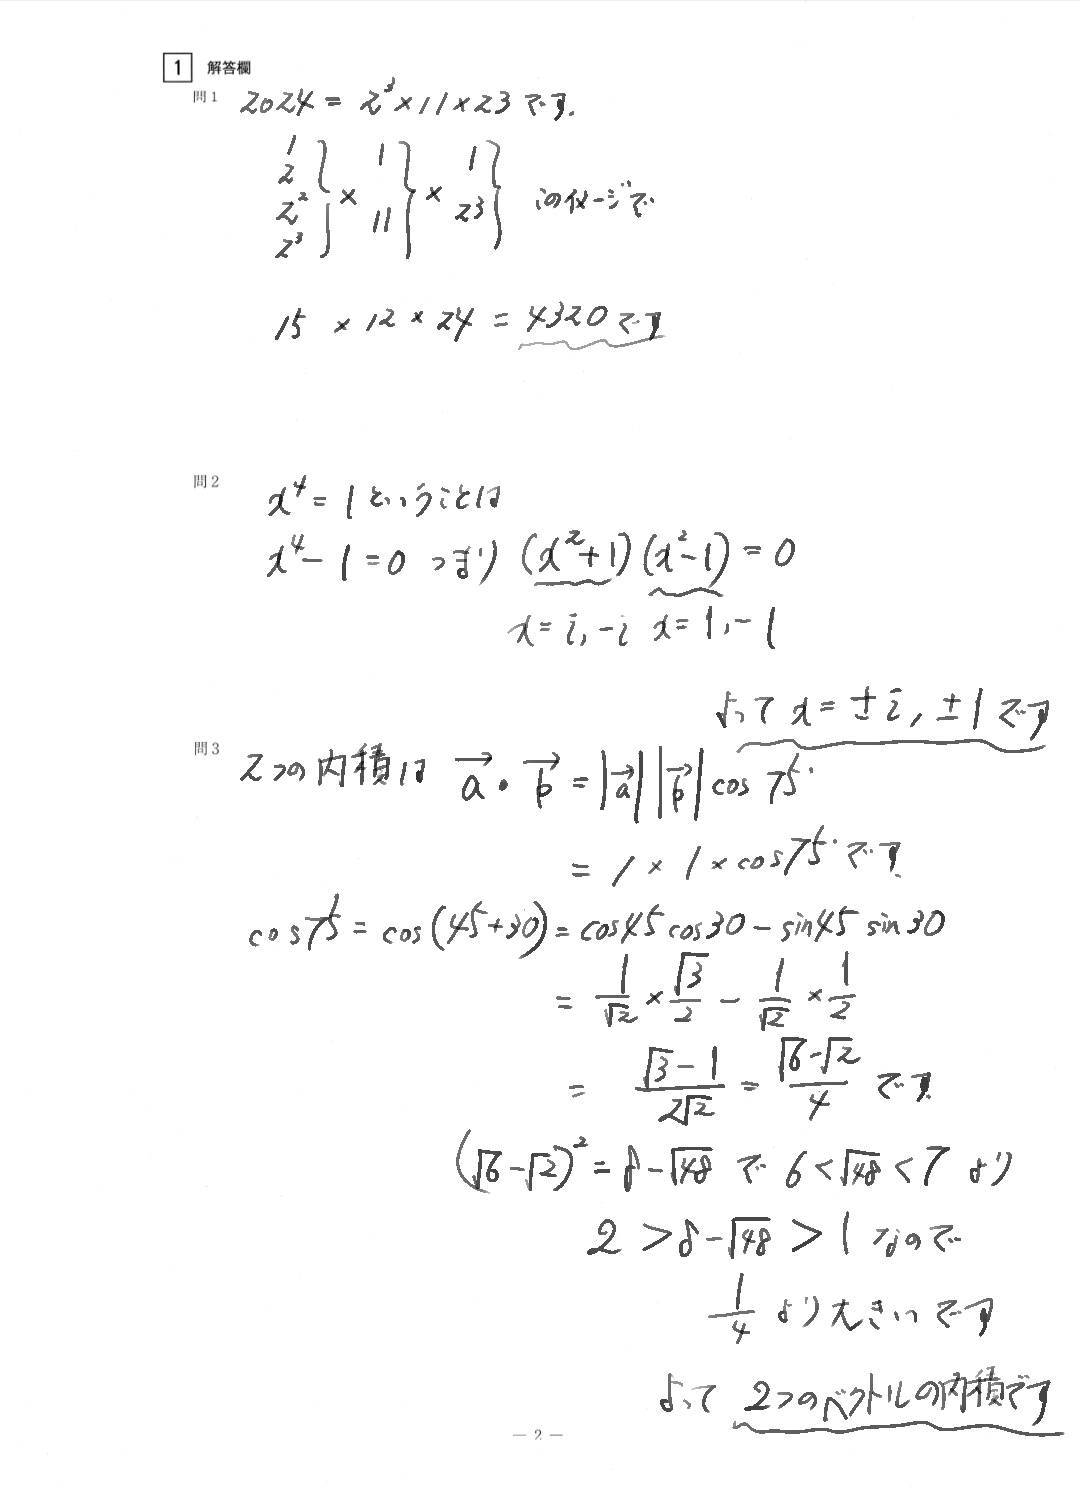 1 解答欄
問1 2024 = 2³×11×23です.
1 2 2² 2³ } × 1 11 } × 1 23 } このイメージで
15 × 12 × 24 = 4320です
問2 x⁴=1ということは
x⁴-1=0 つまり (x²+1)(x²-1)=0
x=i,-i x=1,-1
よって x=±i, ±1です
問3 2つの内積は a→・b→=|a→||b→|cos75°
=1×1×cos75°です
cos75=cos(45+30)=cos45cos30-sin45 sin30
= 1/√2 × √3/2 - 1/√2 × 1/2
= (√3-1)/2√2 = (√6-√2)/4 です
(√6-√2)²=8-√48 で 6<√48<7 より
2>8-√48>1 なので
1/4 より大きいです
よって 2つのベクトルの内積です
— 2 —